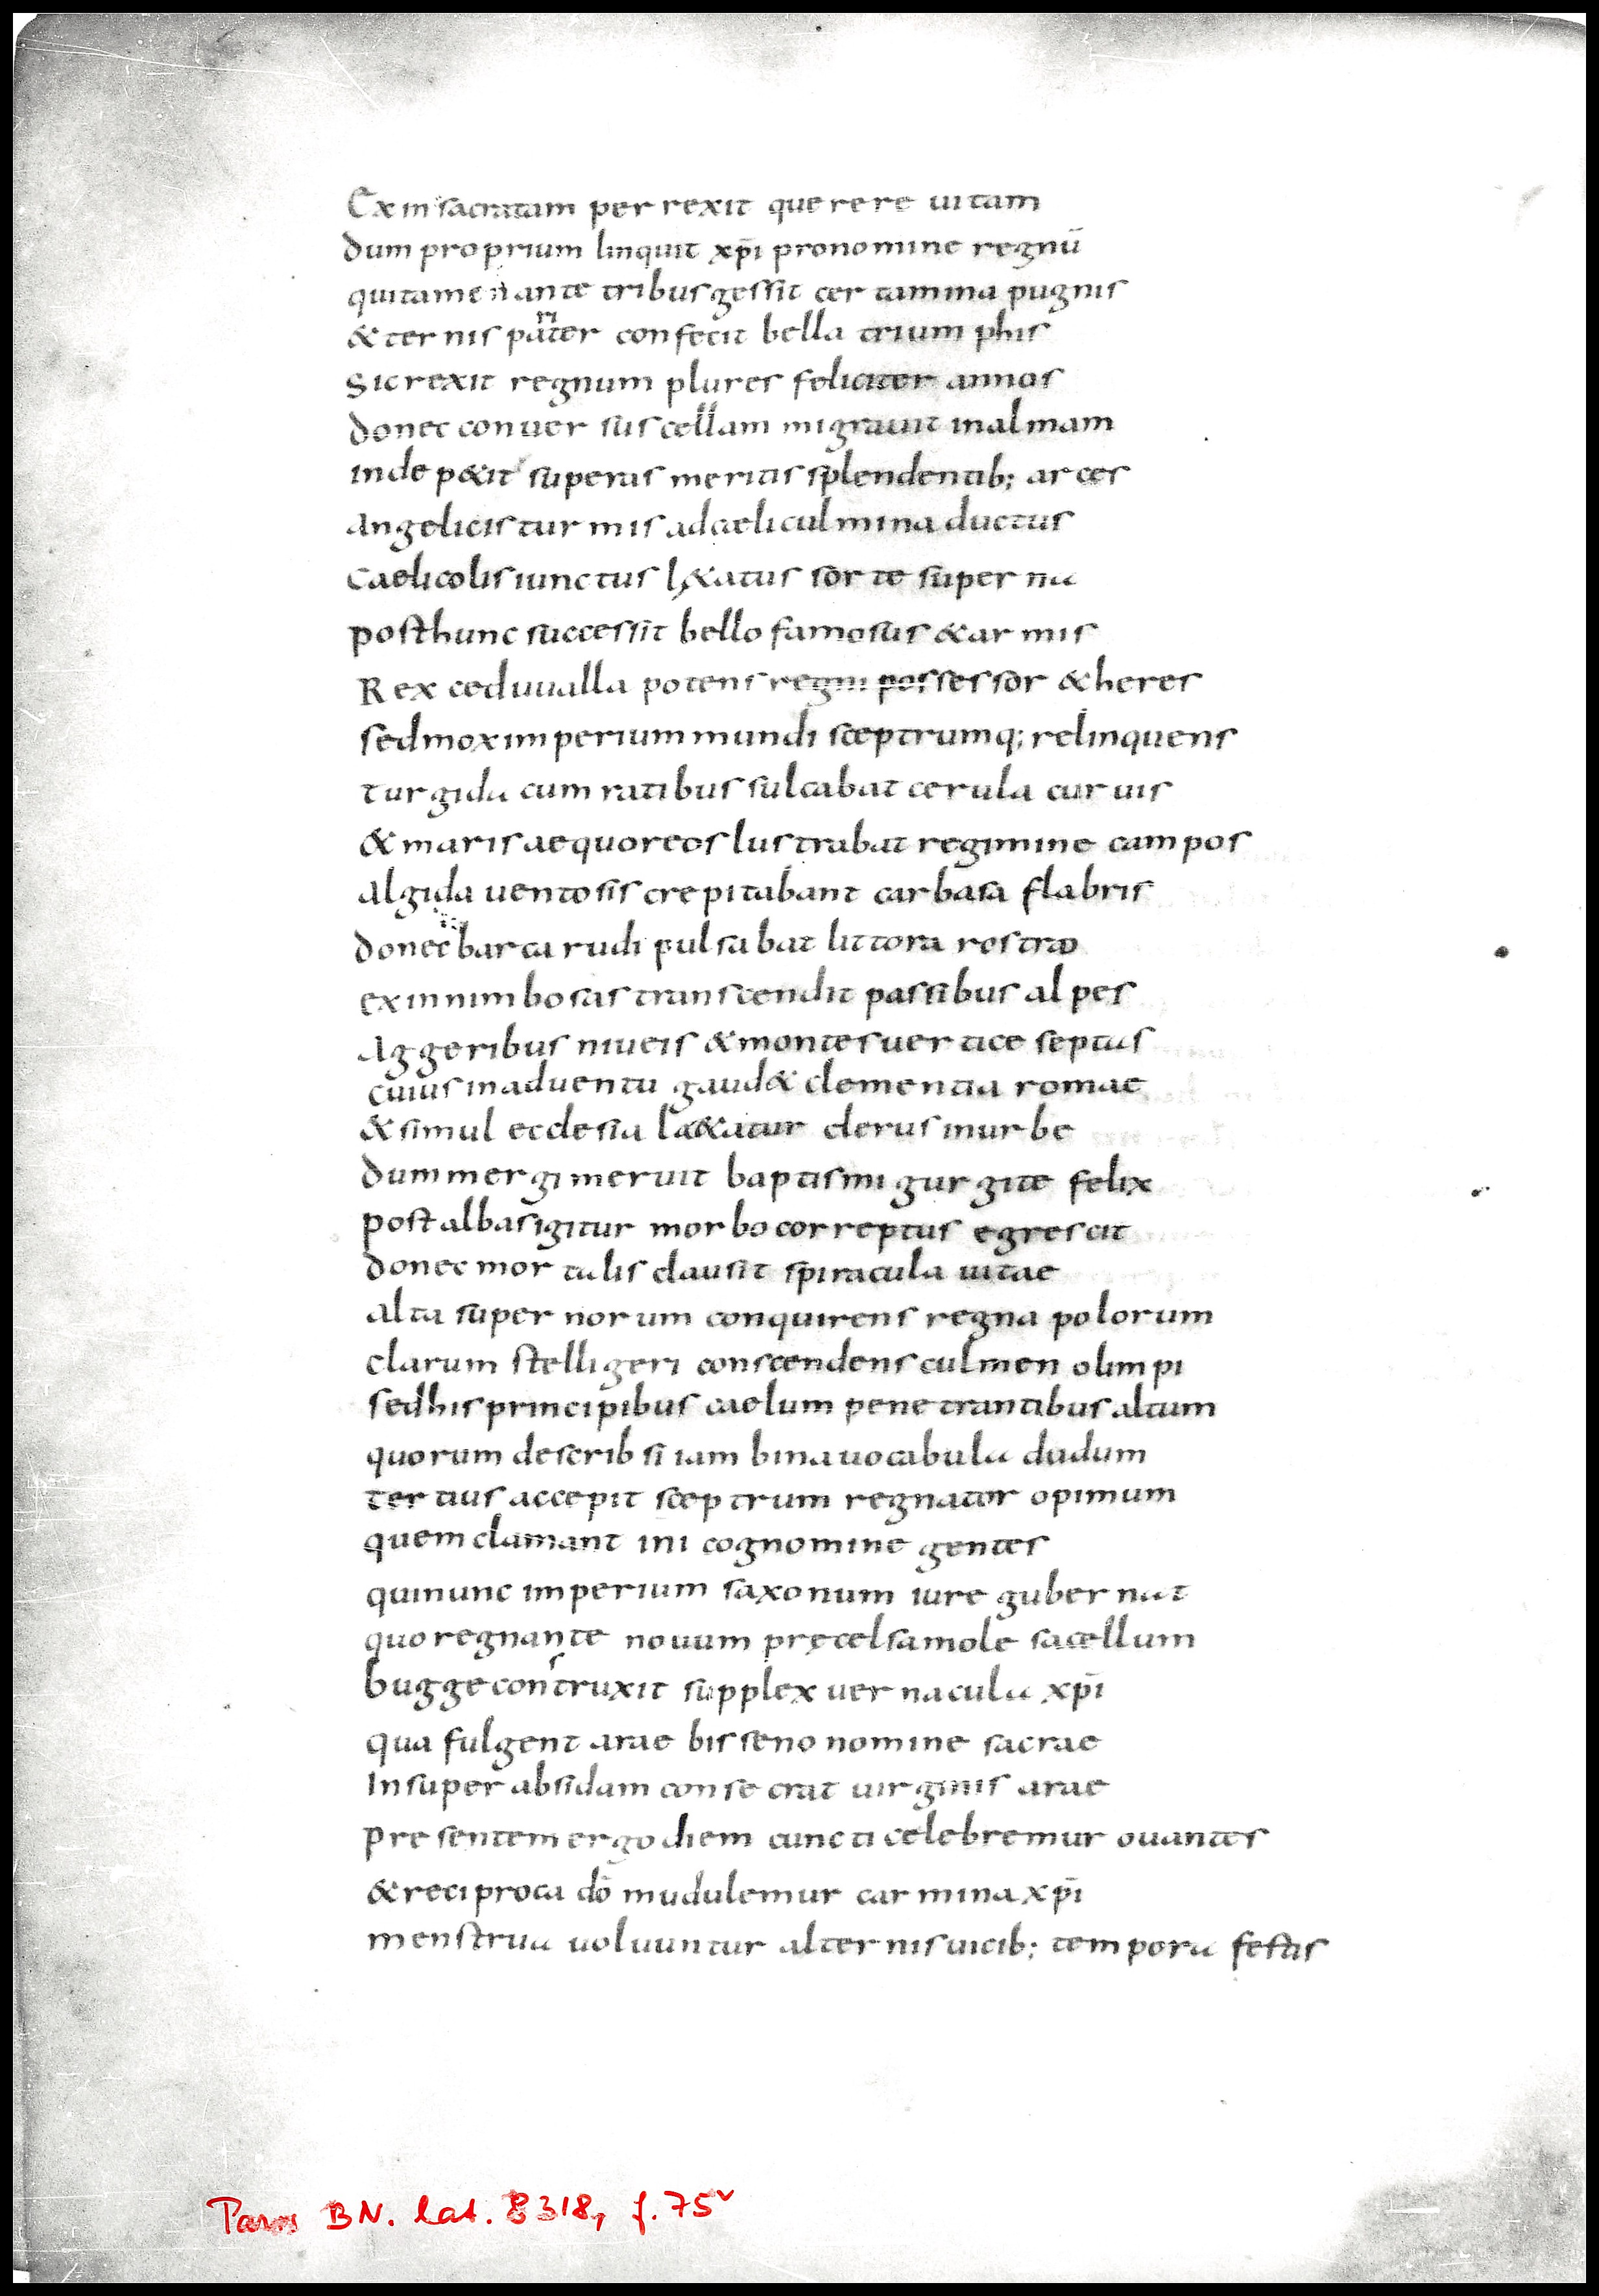 Exin sacratam perrexit querere uitam
dum proprium linquit xp̄i pro nomine regnū
qui tamen ante tribus gessit certamina pugnis
& ternis pariter confecit bella triumphis
Sic rexit regnum plures feliciter annos
donec conuersus cellam migrauit in almam
inde p&iit superas meritis splendentib; arces
angelicis turmis ad caeli culmina ductus
Caelicolis iunctus l&atus sorte superna
post hunc successit bello famosus & armis
Rex ceduualla potens regni possessor & heres
sed mox imperium mundi sceptrumq; relinquens
turgida cum ratibus sulcabat cerula curuis
& maris aequoreos lustrabat regimine campos
algida uentosis crepitabant carbasa flabris
donec barca rudi pulsabat littora rostro
exin nimbosas transcendit passibus alpes
Aggeribus niueis & montes uertice septas
cuius in aduentu gaud& clementia romae
& simul ecclesia l&atur clerus in urbe
dum mergi meruit baptismi gurgite felix
post albas igitur morbo correptus egrescit
donec mortalis clausit spiracula uitae
alta supernorum conquirens regna polorum
clarum stelligeri conscendens culmen olimpi
sed his principibus caelum penetrantibus altum
quorum describsi iam bina uocabula dudum
tertius accepit sceptrum regnator opimum
quem clamant ini cognomine gentes
qui nunc imperium saxonum iure gubernat
quo regnante nouum pręcelsa mole sacellum
bugge construxit supplex uernacula xp̄i
qua fulgent arae bis seno nomine sacrae
Insuper absidam consecrat uirginis arae
presentem ergo diem cuncti celebremur ouantes
& reciproca dō mudulemur carmina xp̄i
menstrua uoluuntur alternis uicib; tempora festis
Paris BN. lat. 8318, f. 75v